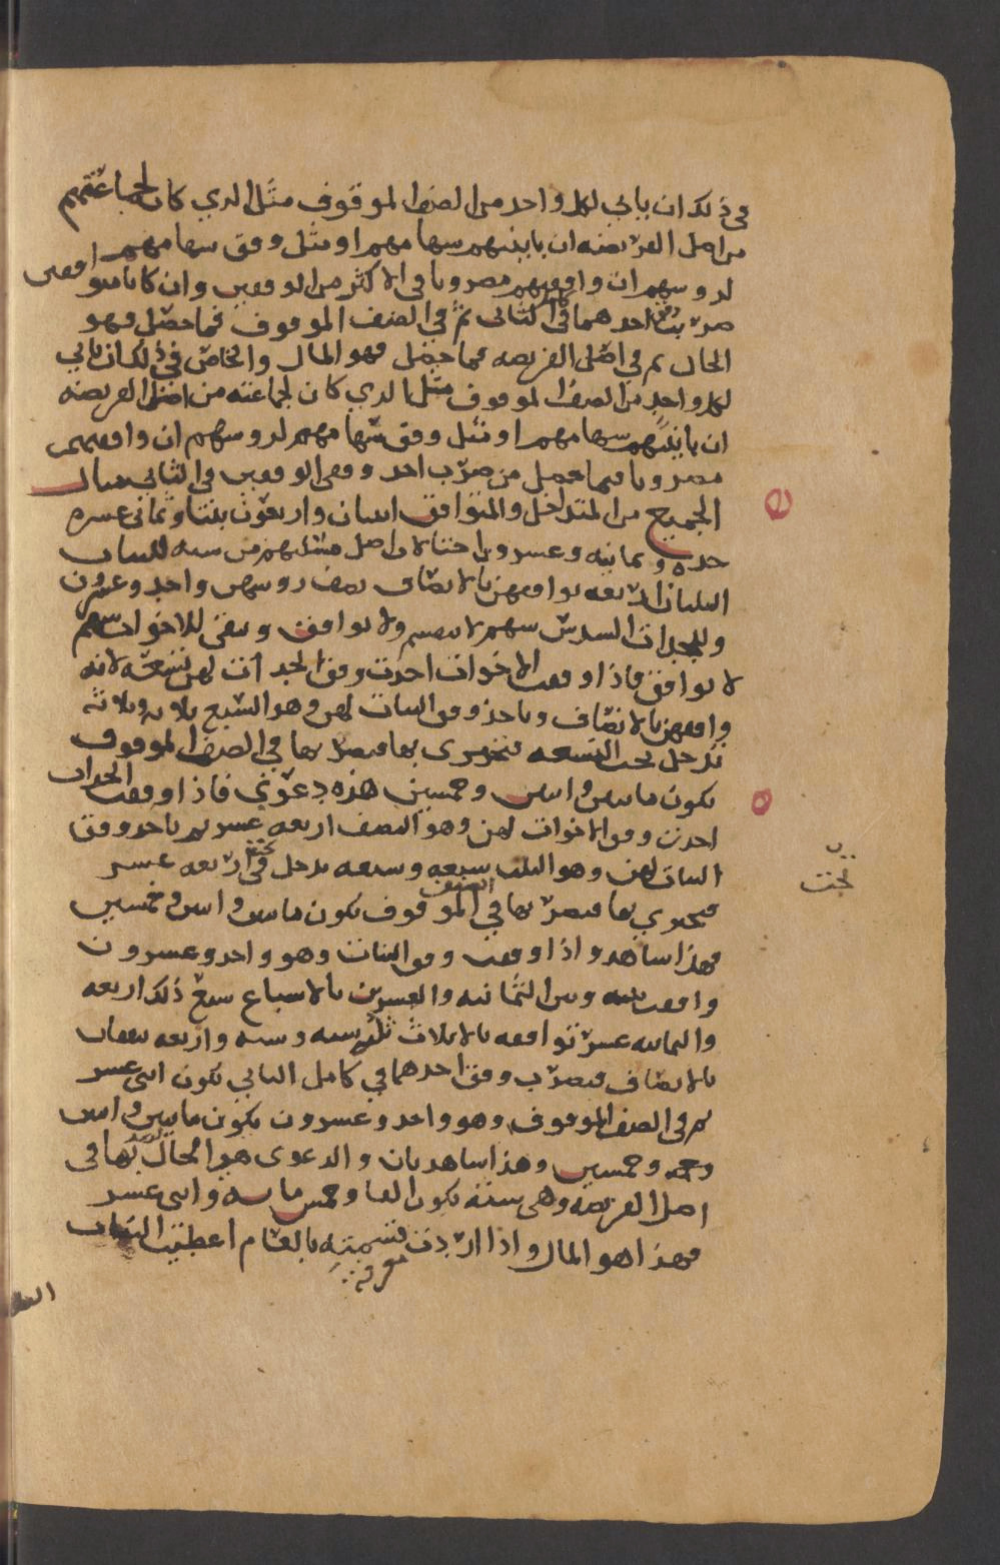 في ذلك ان ياتي لكل واحد من الصنف الموقوف مثل الدي كان لجماعتهم
من اصل الفريضه ان باينهم سهامهم او مثل وفق سهامهم
لروسهم ان وافقهم مضروبا في الاكثر من الوفقين وان كانا متوافقين
ضربت احدهما في الثاني ثم في الصنف الموقوف فما حصل فهو
الحال ثم في اصل الفريضه فما حصل فهو المال والخاص في ذلك ان ياتي
لكل واحد من الصنف الموقوف مثل الدي كان لجماعته من اصل الفريضه
ان باينهم سهامهم او مثل وفق سهامهم لروسهم ان وافقهم
مضروبا فيما حصل من ضرب احد وفقي الوفقين في الثاني مثال
الجميع من المتداخل والمتوافق اثنان واربعون بنتا وثماني عشره
جده وثمانيه وعشرون اختا لاب اصل مسئلتهم من سته للبنات
الثلثان اربعه توافقهن بالانصاف نصف روسهن واحد وعشرون
وللجدات السدس سهم لا ينقسم ولا يوافق وبقي للاخوات سهم
لا يوافق فاذا اوقفت الاخوات اخذت وفق الجدات لهن تسعه لانه
وافقهن بالانصاف وتاخذ وفق البنات لهن وهو السبع ثلاثه وثلاثه
تدخل تحت التسعه فتجتزي بها فتضربها في الصنف الموقوف
يكون مائتين واثنين وخمسين هذه دعوتي فاذا اوقفت الجدات
اخذت وفق الاخوات لهن وهو النصف اربعه عشر ثم تاخذ وفق
البنات لهن وهو الثلث سبعه وسبعه تدخل تحت اربعه عشر
فتجتزي بها فتضربها في الصنف الموقوف يكون مائتين واثنين وخمسين
فهذا شاهد واذا اوقفت وفق البنات وهو واحد وعشرون
وافقت بينه وبين الثمانيه والعشرين بالاسباع سبع ذلك اربعه
والثمانيه عشر توافقه بالاثلاث ثلثه سته وسته واربعه يتفقان
بالانصاف فتضرب وفق احدهما في كامل الثاني يكون اثني عشر
ثم في الصنف الموقوف وهو واحد وعشرون يكون مائتين واثنين
وخمسين وهذا شاهد ثان والدعوى هو الحال تضربها في
اصل الفريضه وهي سته يكون الفا وخمس مايه واثني عشر
فهذا هو المال واذا اردت معرفة قسمته بالتمام اعطيت البنات
تحت